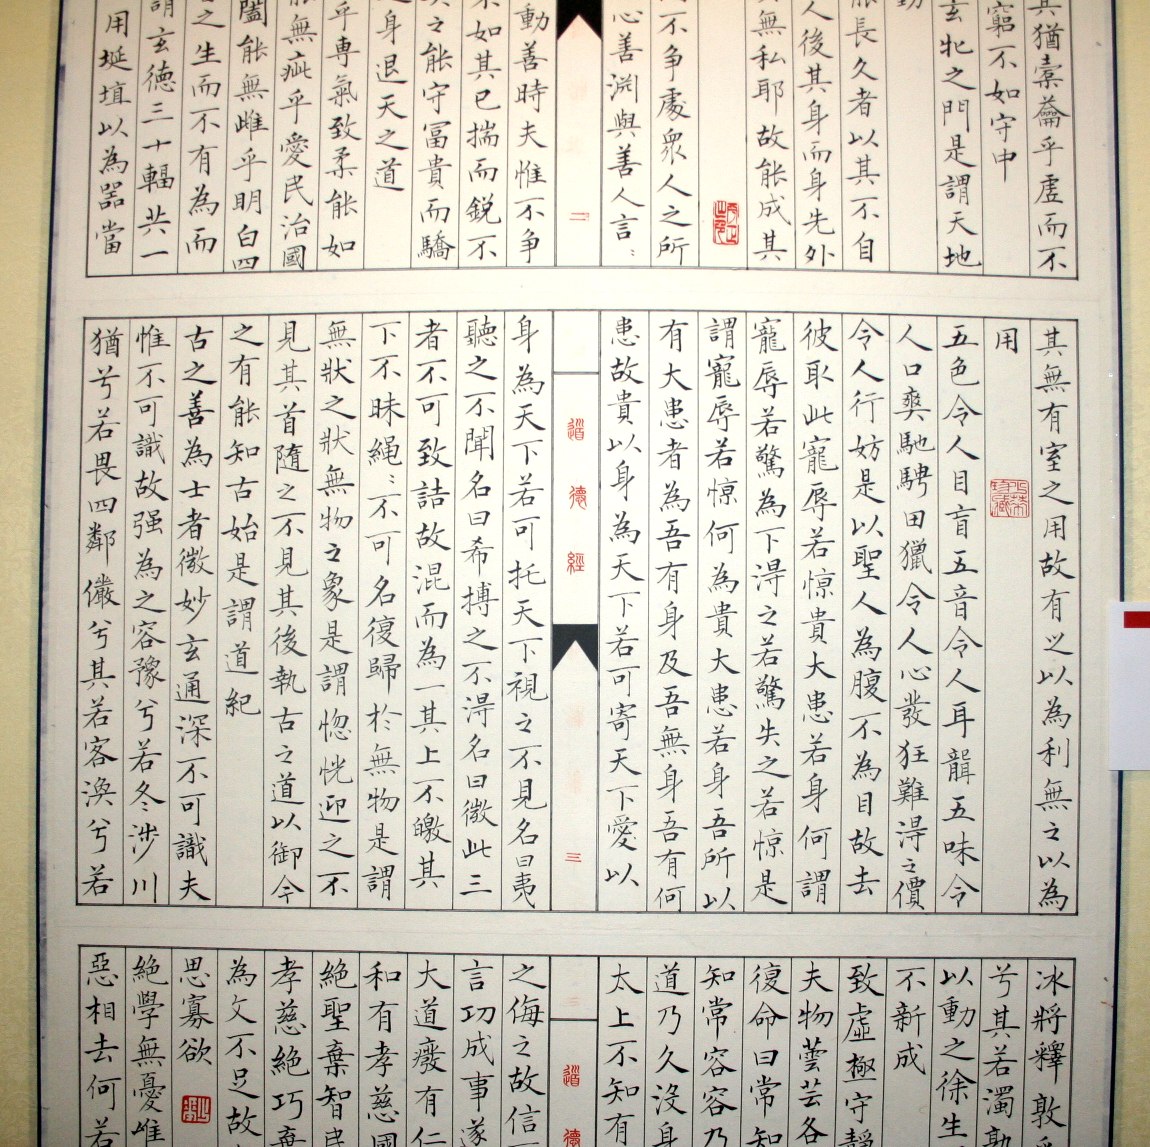 其猶橐籥乎虚而不
窮不如守中
玄牝之門是謂天地
能長久者以其不自
人後其身而身先外
無私耶故能成其
不争處衆人之所
心善渊與善人言:
二
動善時夫惟不争
不如其已揣而鋭不
之能守冨貴而驕
身退天之道
乎専氣致柔能如
能無疵乎愛民治國
闔能無雌乎明白四
之生而不有為而
謂玄徳三十輻共一
用埏埴以為器當
其無有室之用故有之以為利無之以為
用
五色令人目盲五音令人耳聾五味令
人口爽馳騁田獵令人心發狂難淂之價
令人行妨是以聖人為腹不為目故去
彼取此寵辱若惊貴大患若身何謂
寵辱若驚為下淂之若驚失之若惊是
謂寵辱若惊何為貴大患若身吾所以
有大患者為吾有身及吾無身吾有何
患故貴以身為天下若可寄天下愛以
道德經
三
身為天下若可托天下視之不見名曰夷
聽之不聞名曰希搏之不淂名曰微此三
者不可致詰故混而為一其上不皦其
下不昧繩:不可名復歸於無物是謂
無狀之狀無物之象是謂惚恍迎之不
見其首隨之不見其後執古之道以御今
之有能知古始是謂道紀
古之善為士者微妙玄通深不可識夫
惟不可識故强為之容豫兮若冬涉川
猶兮若畏四鄰儼兮其若客渙兮若
冰將釋敦
兮其若濁
以動之徐生
不新成
致虛極守靜
夫物芸芸各
復命曰常知
知常容容乃
道乃久沒身
太上不知有
道德
之侮之故信
言功成事遂
大道廢有仁
和有孝慈國
絕聖棄智民
孝慈絕巧棄
為文不足故
思寡欲
絕學無憂唯
惡相去何若